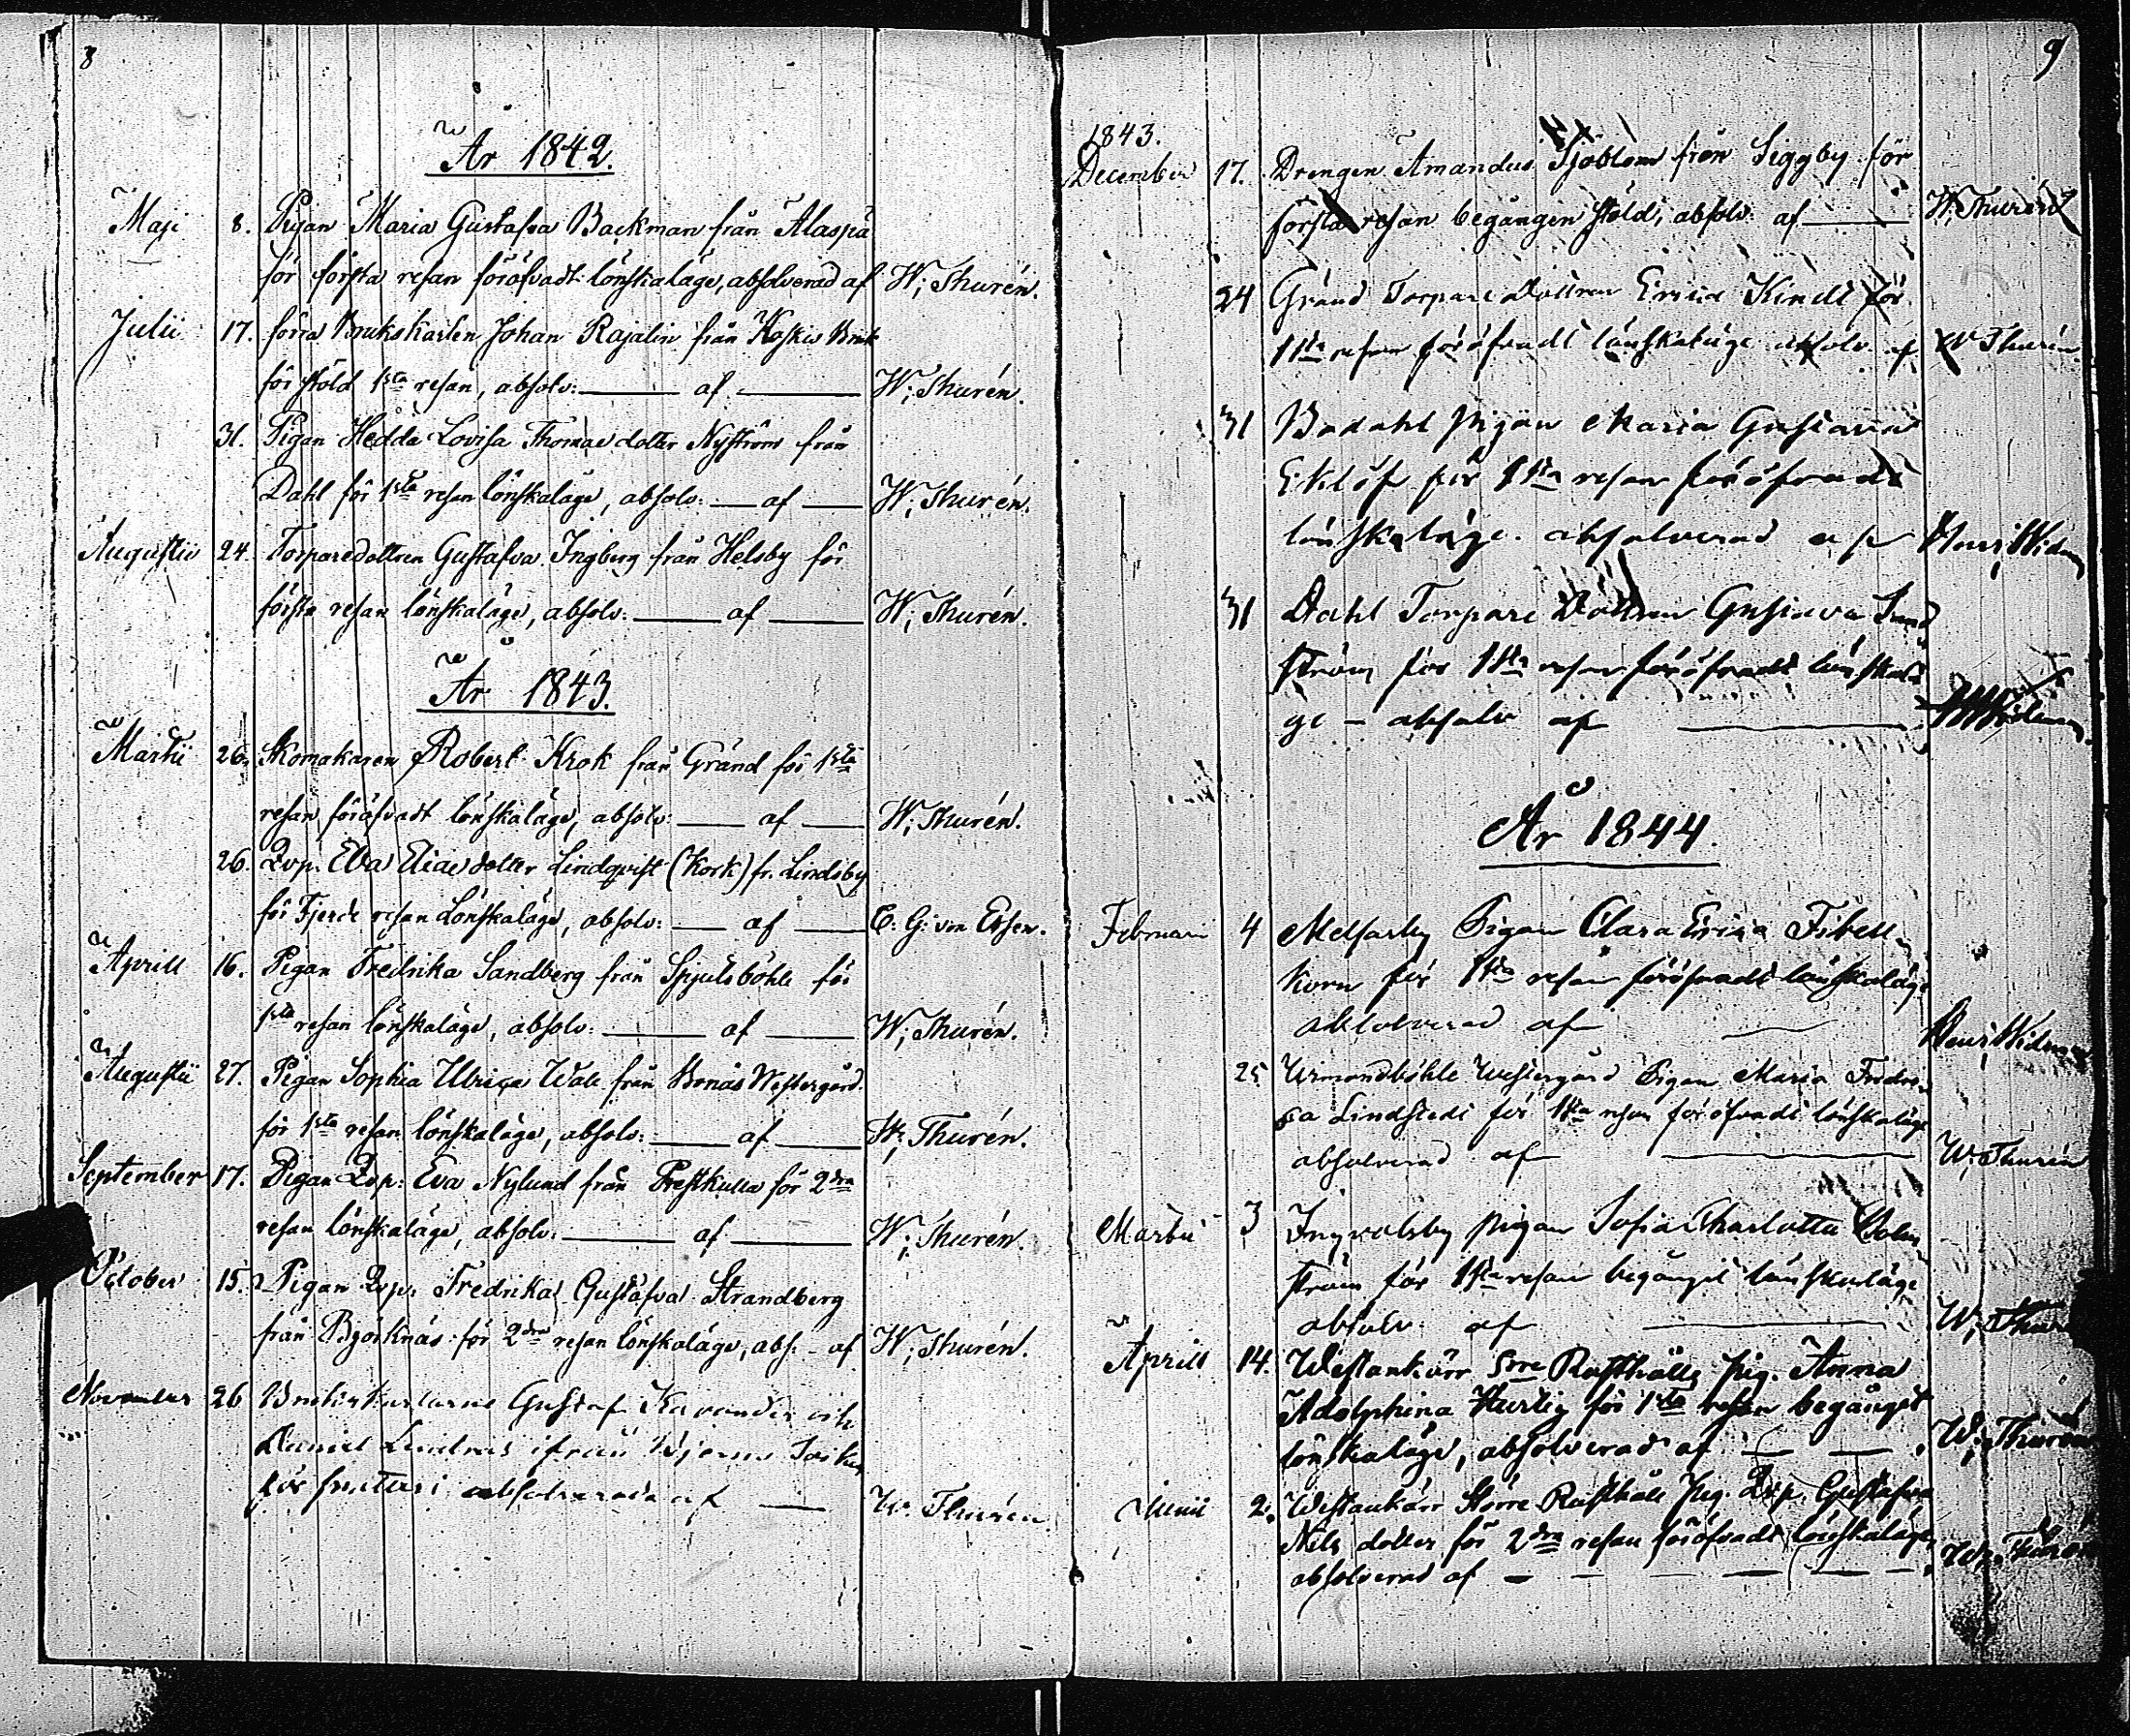 8
År 1842.
Maji 8. Pigan Maria Gustafva Backman från Alaspä
för första resan föröfvadt lönskaläge, absolverad af W: Thurén.
Julii 17. förra Brukskarlen Johan Rajalin från Koskis Bruk
för stöld 1sta resan, absolv: af W: Thurén.
31. Pigan Hedda Lovisa Thomae dotter Nyström från
Dahl för 1sta resan lönskaläge, absolv: af W: Thurén.
Augustii 24. Torparedottren Gustafva Ingberg från Helsby för
första resan lönskaläge, absolv: af W: Thurén.
År 1843.
Martii 26. Skomakaren Robert Krok från Gränd för 1sta
resan föröfvadt lönskaläge, absolv: af W: Thurén.
26. Qvp. Eva Eliae dotter Lindqvist (Kork) fr. Lindsby
för Fjerde resan Lönskaläge, absolv: af C: G: von Essen.
Aprill 16. Pigan Fredrika Sandberg från Spjutsböhle för
1sta resan lönskaläge, absolv: af W: Thurén.
Augustii 27. Pigan Sophia Ulrica Wall från Bonäs Westergård
för 1sta resan lönskaläge, absolv: af W: Thurén.
September 17. Pigan Qvp: Eva Nylund från Prestkulla för 2dra
resan lönskaläge, absolv: af W: Thurén.
October 15. Pigan Qvp: Fredrika Gustafva Strandberg
från Björknäs för 2dra resan lönskaläge, abs: af W: Thurén.
November 26 Brukskarlarne Gustaf Kavander och
Daniel ifrån
för absolverade af W. Thurén
9
1843.
December 17. Drengen Amandus Sjöblom från Siggby för
första resan begången stöld, absolv: af W: Thurén
24 Gränd Torpare Dottren Erica Kindt för
1sta resan föröfvadt lönskaläge absolv. af W Thurén
31 Badahl pigan Maria Gustava
Eklöf för 1sta resan föröfvadt
lönskaläge. absolverad af
31 Dahl Torpare Dottren Gustava Sund
ström för 1sta resan föröfvadt lönskalä
ge – absolv af
År 1844.
Februari 4 Melfarby Pigan Clara Erica Fibell
korn för 1sta resan föröfvadt lönskaläge
absolverad af
25 Westergård Pigan Maria Fredri
ca Lindstedt för 1sta resan föröfvadt lönskaläge
absolverad af W: Thurén
Martii 3 Ingvalsby pigan Sofia Charlotta Holm
ström för 1sta resan begånget lönskaläge
absolv. af W: Thurén
Aprill 14. Westankärr Rusthålls pig. Anna
Adolphina Hurtig för 1sta resan begånget
lönskaläge, absolverad af W: Thurén
Junii 2. Westankärr Större Rusthåll pig. Qvp. Gustafva
Nils dotter för 2dra resan föröfvadt lönskaläge
absolverad af W: Thurén